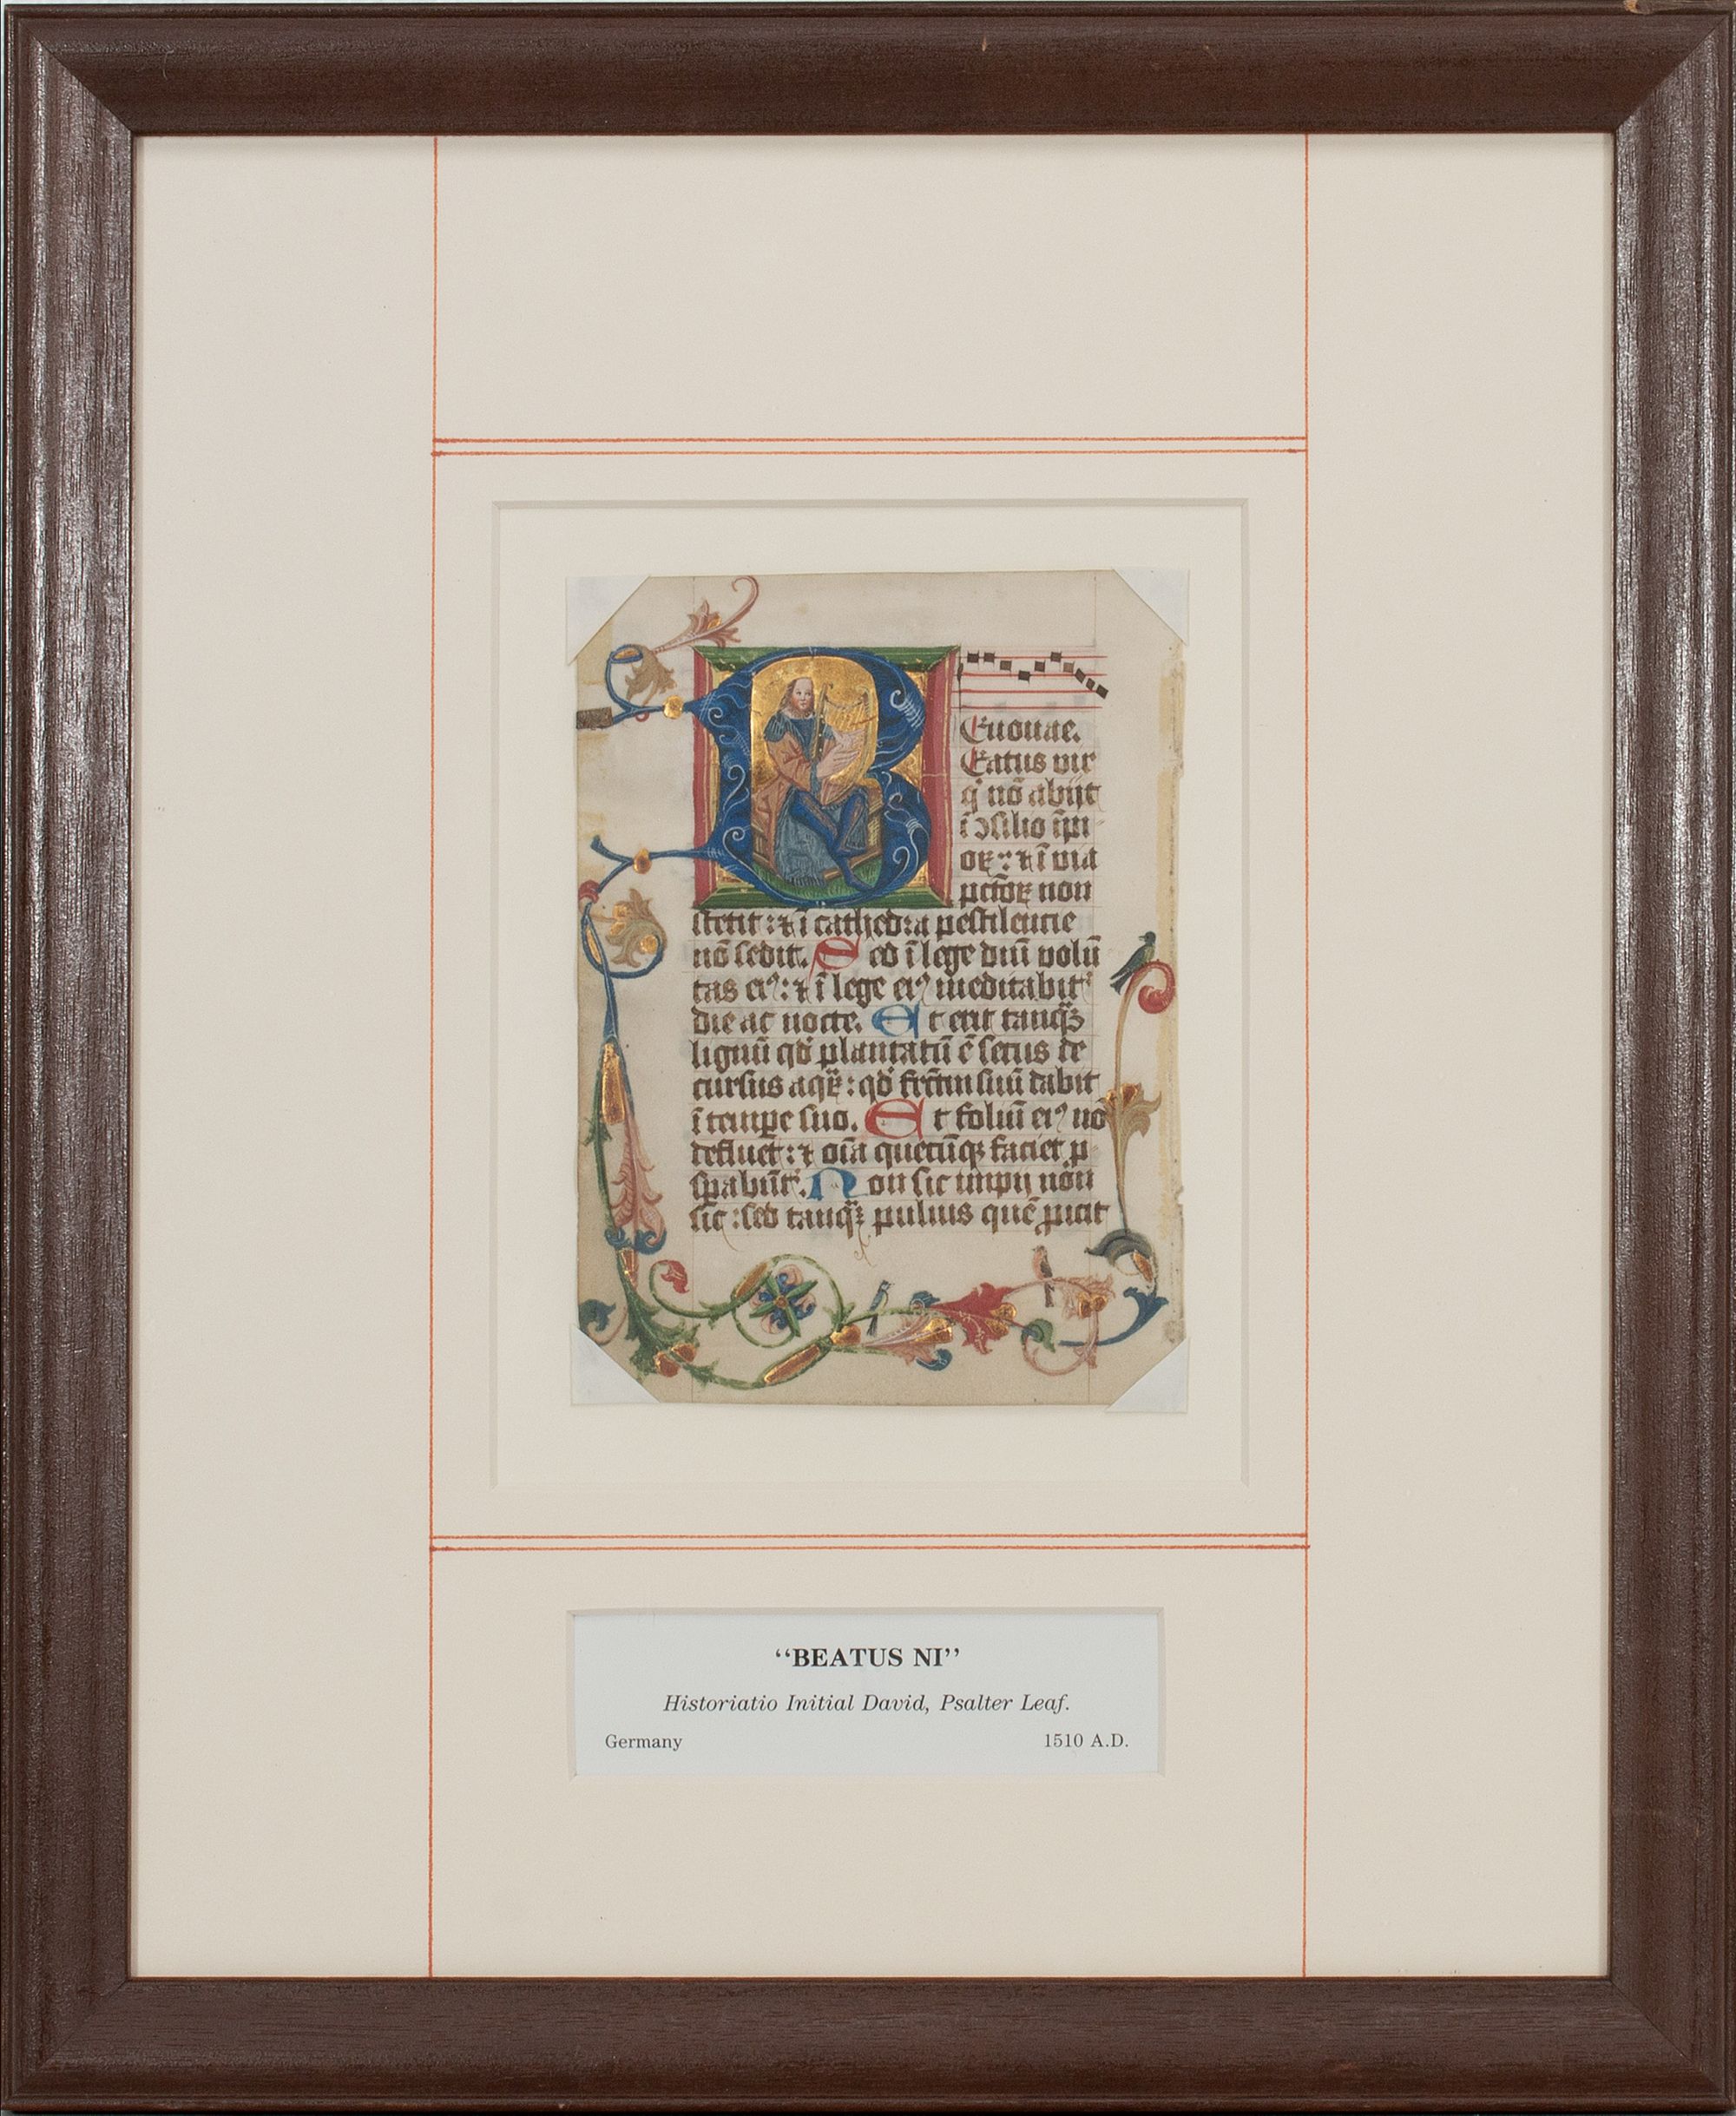 Euouae.
Eatus vir
q̇ nō abijt
ī ↄsilio īpi
oꝝ: ⁊ ī via
pctōꝝ non
stetit: ⁊ ī cathedra pestilentie
nō sedit. Sed ī lege dn̄i volū
tas eiꝰ: ⁊ ī lege eiꝰ meditabit᷑
die ac nocte. Et erit tanqꝫ
lignū qď plantatū ē secus de
cursus aqꝝ: qď frctm̄ suū dabit
ī tempe suo. Et foliū eiꝰ nō
defluet: ⁊ oīa quecūqꝫ faciet p
spabūt᷑. Non sic impij non
sic: sed tanqꝫ puluis quē ꝓicit
“BEATUS NI”
Historiatio Initial David, Psalter Leaf.
Germany 1510 A.D.